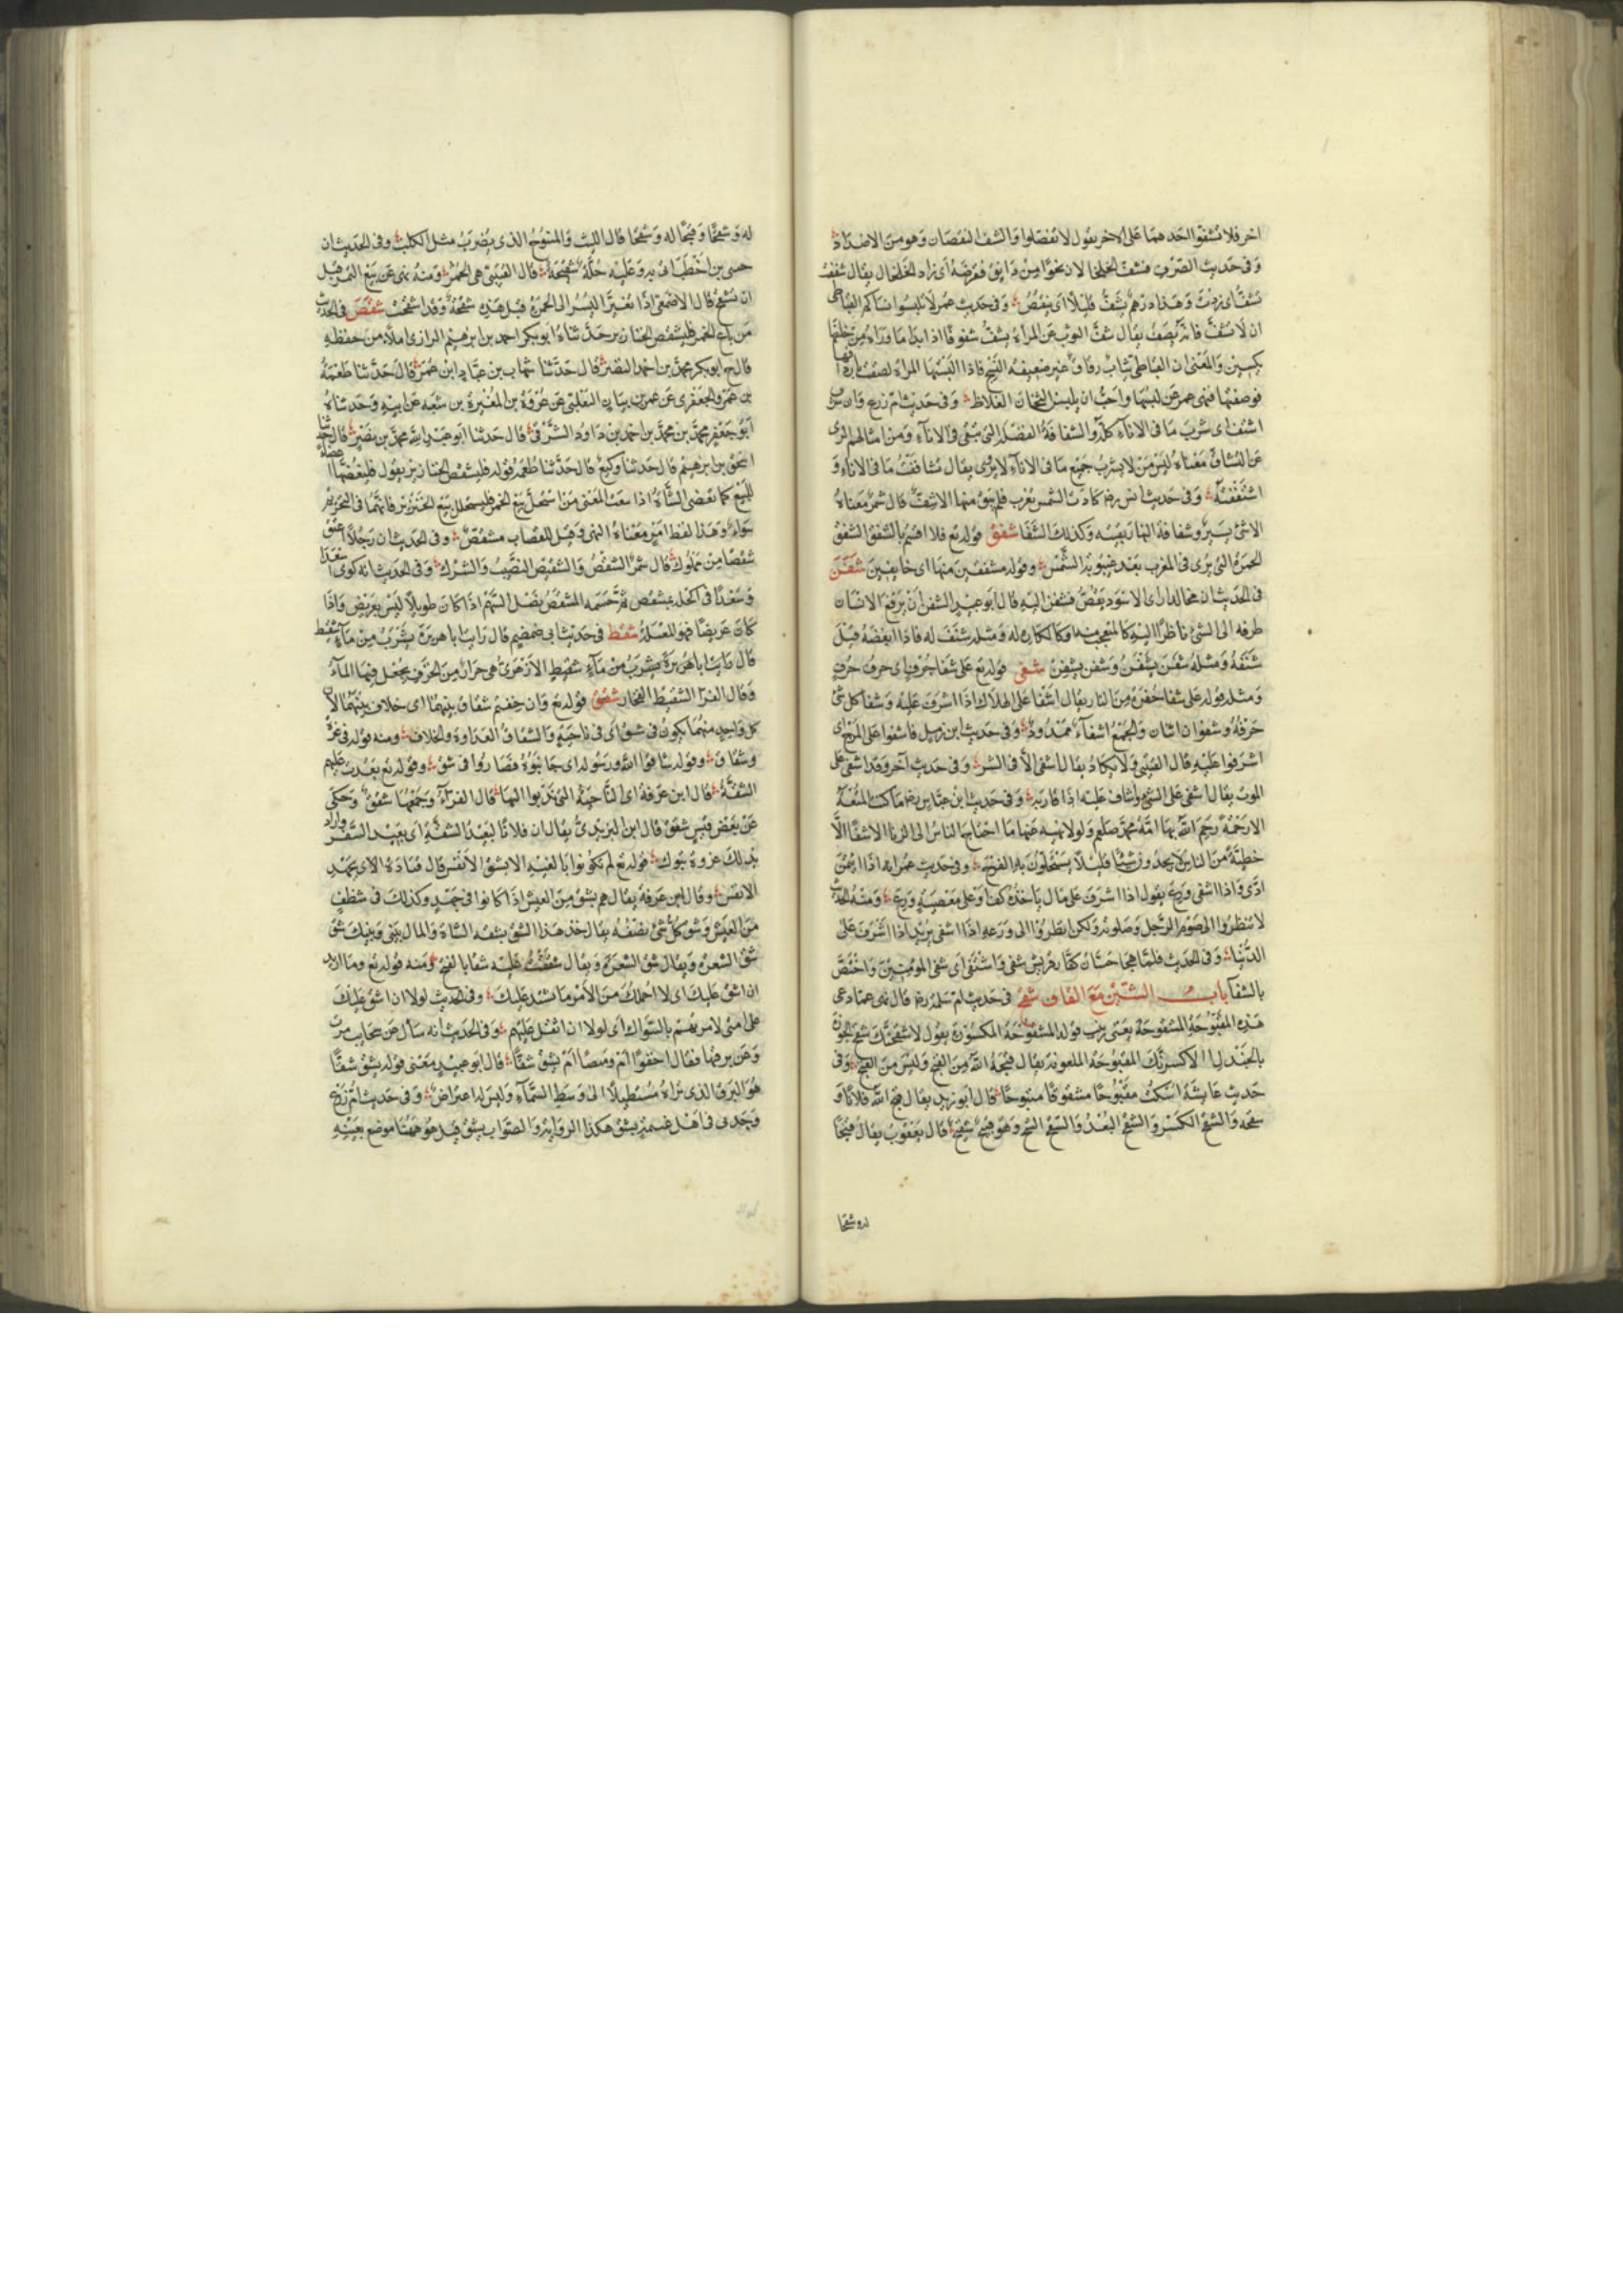 اخر فلا تشفوا احدهما على الاخر يقول لا تفضلوا والشف النقصان وهو من الاضداد
وفى حديث الصرف فشف الخلخالان نحوا من دانق فقرضه اى زاد الخلخال يقال شففت
تشف اى زدت وهذا درهم يشف قليلا اى ينقص وفى حديث عمر لا تلبسوا نساكم القباطى
ان لا تشف فانه يصف يقال شف الثوب عن المراة يشف شفوفا اذا ابدا ما وراه من خلقها
والمعنى ان القباطى ثياب رقاق غير ضعيفة النسج فاذا البستها المراة لصقت باردافها
فوصفتها فنهى عمر عن لبسها واحب ان يلبسن الثخان الغلاظ وفى حديث ام زرع وان شرب
اشتف اى شرب ما فى الاناء كله والشفافة الفضلة التى تبقى فى الاناء ومن امثالهم الرى
عن التشاف معناه ليس من لا يشرب جميع ما فى الاناء لا يروى يقال تشاففت ما فى الاناء و
اشتففته وفى حديث انس رضه كادت الشمس تغرب فلم يبق منها الا شف قال شمر معناه
الا شئ يسير وشفافة النهار بقيته وكذلك الشفا شفق قوله تع فلا اقسم بالشفق الشفق
الحمرة التى ترى فى المغرب بعد غيبوبة الشمس وقوله مشفقين منها اى خايفين شفن
فى الحديث ان مجالدا راى الاسود يقص فشفن اليه قال ابو عبيد الشفن ان يرفع الانسان
طرفه الى الشئ ناظرا اليه كالمتعجب منه وكالكاره له ومثله شنف له فاذا ابغضه قيل
شنفه ومثله شفن يشفن وشفن يشفن شفى قوله تع على شفا جرف اى حرف جرف
ومثله قوله على شفا حفرة من النار يقال اشفا على الهلاك اذا اشرف عليه وشفا كل شئ
حرفه وشفوان اثنان والجمع اشفاء ممدود وفى حديث ابن زميل فاشفوا على المرج اى
اشرفوا عليه قال القتيبى ولا يكاد يقال اشفى الا فى الشر وفى حديث آخر وقد اشفى على
الموت يقال اشفى على الشئ واشاف عليه اذا قاربه وفى حديث ابن عباس رضه ما كانت المتعة
الا رحمة رحم الله بها امة محمد صلعم ولولا نهيه عنها ما احتاج الناس الى الزنا الا شفا الا
خطيئة من الناس لا يجدون شيئا قليلا يستحلون به الفرج وفى حديث عمرانه اذا ائتمن
ادى واذا اشفى ورع يقول اذا اشرف على مال ياخذه كف او على معصية ورع ومنه الحديث
لا تنظروا الى صوم الرجل وصلوته ولكن انظروا الى ورعه اذا اشفى يريد اذا اشرف على
الدنيا وفى الحديث فلما هجا حسان كفار قريش شفى واشتفى اى شفى المومنين واختص
بالشفا باب الشين مع القاف شقح فى حديث ام سلمة رضه قال عمار دعى
هذه المقبوحة المشقوحة يعنى زينب قوله المشقوحة المكسورة يقول لاشقحنك شقح الجوز
بالجندل اى لاكسرنك المقبوحة الملعونة يقال قبحه الله من القبح وليس من القبح وفى
حديث عايشة اسكت مقبوحا مشقوحا منبوحا قال ابو زيد يقال قبح الله فلانا و
شقحه والشقح الكسر والشقح البعد والشقح الشح وهو قبيح شقيح قال يعقوب يقال قبحا
له وشقحا
له وشقحا وقبحا له وشقحا قال الليث والمنبوح الذى يضرب مثل الكلب وفى الحديث ان
حيى بن اخطب اتى به وعليه حلة شقحية قال القتيبى هى الحمر ومنه نهى عن بيع التمر قبل
ان تشقح قال الاصمعى اذا تغير البسر الى الحمرة قيل هذه شقحة وقد اشقحت شقص فى الحديث
من باع الخمر فليشقص الخنازير حدثناه ابو بكر احمد بن ابرهيم الرازى املاء من حفظه
قال ابو بكر محمد بن احمد النضر قال حدثنا شهاب بن عباد ابن عمر قال حدثنا طعمة
بن عمرو الجعفرى عن عمر بن بيان التغلبى عن عروة بن المغيرة بن شعبة عن ابيه وحدثناه
ابو جعفر محمد بن محمد بن احمد بن داود الشرقى قال حدثنا ابو عبد الله محمد بن نصير قال حدثنا
اسحق بن ابرهيم قال حدثنا وكيع قال حدثنا طعمة قوله فليشقص الخنازير يقول فليقطعها اعضاء
للبيع كما تعضى الشاة اذا بيعت المعنى من استحل بيع الخمر فليستحلل بيع الخنزير فانهما فى التحريم
سواء وهذا لفظ امر معناه النهى وقيل للقصاب مشقص وفى الحديث ان رجلا اعتق
شقصا من مملوك قال شمر الشقص والشقيص النصيب والشرك وفى الحديث انه كوى اسعد
وسعدا فى اكحله بمشقص ثم حسمه المشقص نصل السهم اذا كان طويلا ليس بعريض واذا
كان عريضا فهو المعبلة شقط فى حديث ابى ضمضم قال رايت ابا هريرة يشرب من ماء شقيط
قال رايت ابا هريرة يشرب من ماء شقيط الازهرى هى جرار من الخزف يجعل فيها الماء
وقال الفرا الشقيط الفخار شقق قوله تع وان خفتم شقاق بينهما اى خلاف بينهما لان
كل واحد منهما يكون فى شق اى فى ناحية والشقاق العداوة والخلاف ومنه قوله فى عزة
وشقاق وقوله شاقوا الله ورسوله اى جانبوه فصاروا فى شق وقوله تع بعدت عليهم
الشقة قال ابن عرفة اى الناحية التى تدبوا اليها قال الفراء وجمعها شقق وحكى
عن بعض قيس شقق قال ابن اليزيدى يقال ان فلانا لبعيد الشقة اى بعيد السفر واراد
بذلك غزوة تبوك قوله تع لم تكونوا بالغيه الا بشق الانفس قال قتادة الا بجهد
الانفس وقال ابن عرفة يقال هم بشق من العيش اذا كانوا فى جهد وكذلك فى شظف
من العيش وشق كل شئ نصفه يقال خذ هذا الشق بشقة الشاة والمال بينى وبينك شق
شق الشعرة ويقال شق الشعرة ويقال شققت عليه شقا بالفتح ومنه قوله تع وما اريد
ان اشق عليك اى لا احملك من الامر ما يشتد عليك وفى الحديث لولا ان اشق على
على امتى لامرتهم بالسواك اى لولا ان اثقل عليهم وفى الحديث انه سال عن سحايب مرت
وعن برقها فقال اخفوا ام وميضا ام يشق شقا قال ابو عبيد معنى قوله يشق شقا
هو البرق الذى تراه مستطيلا الى وسط السماء وليس له اعتراض وفى حديث ام زرع
وجدنى فى اهل غنيمة بشق هكذا الرواية والصواب بشق قيل هو ههنا موضع بعينه